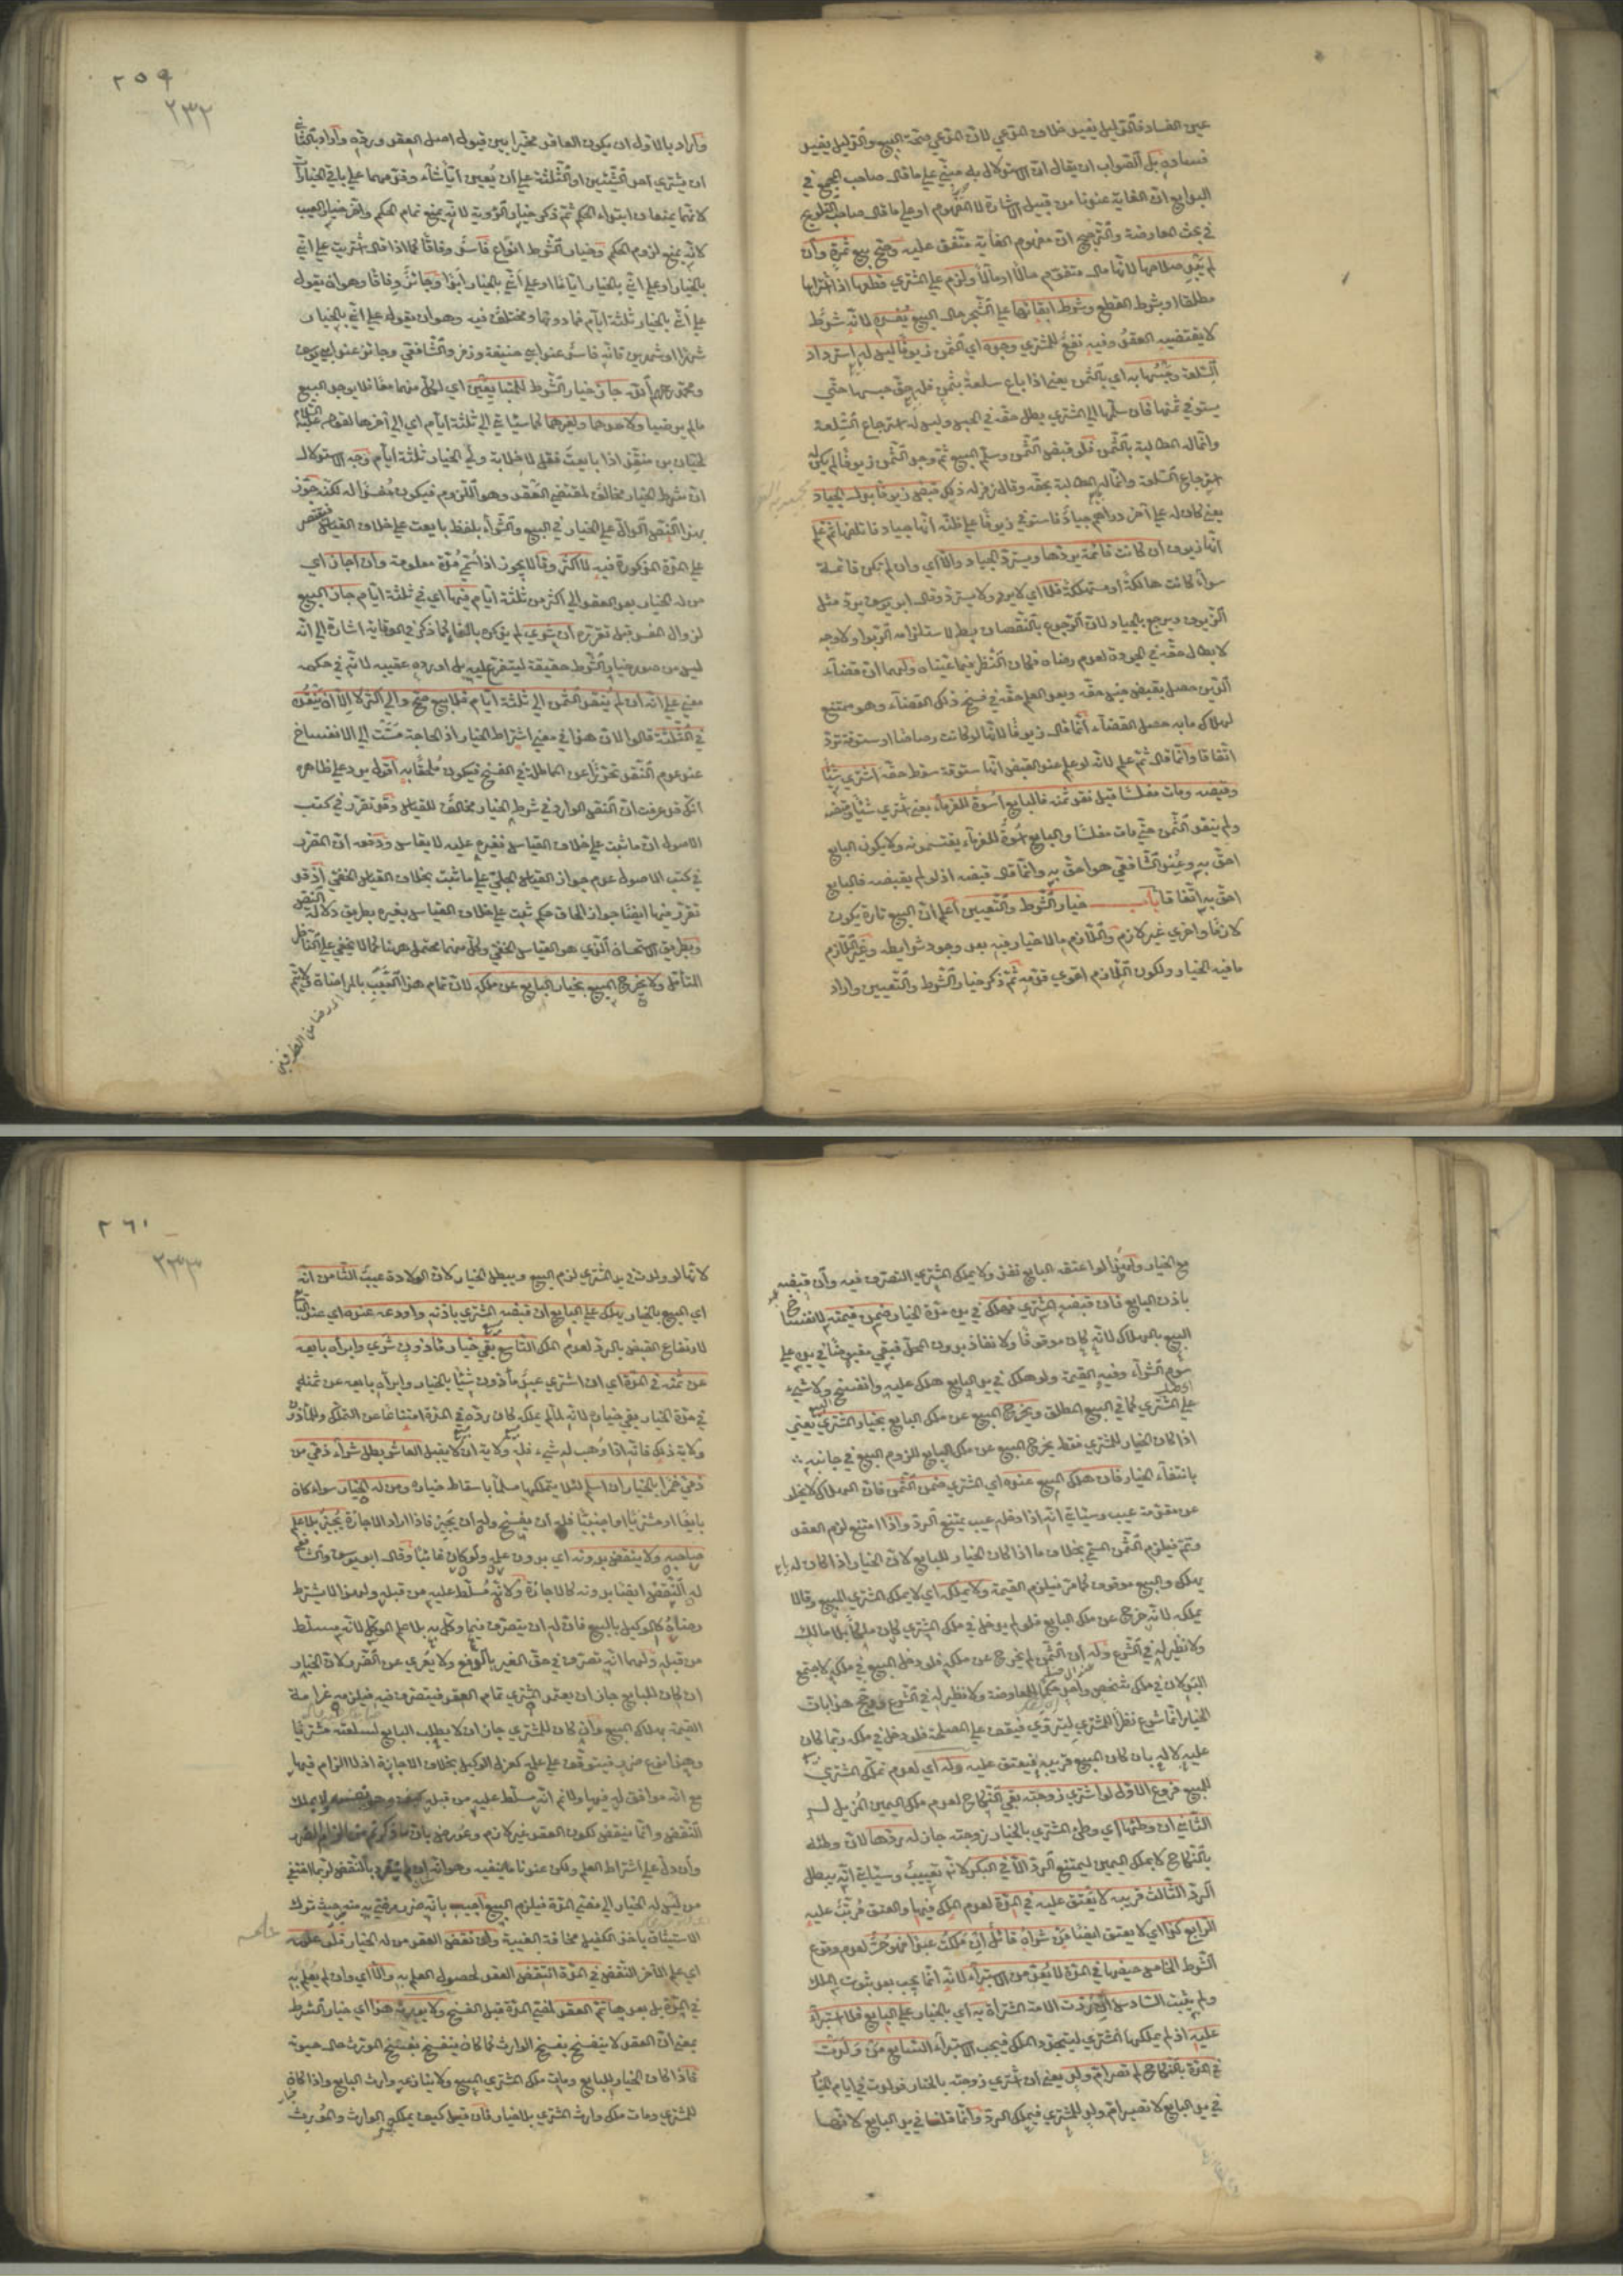 عين الفساد فالتوكيل يفيد خلاف النوعي لان النوعي صحة البيع والتوكيل يفيد
فساده بل الصواب ان يقال ان الاستدلال به مبني على ما قال صاحب المجمع في
البدايع ان الغاية عندنا من قبيل الاشارة لا المفهوم او على ما قال صاحب التلويح
في بحث المعارضة والترجيح ان مفهوم الغاية متفق عليه وصح بيع ثمرة وان
لم يبد صلاحها لانها مال متقوم حالا او مآلا ولزم على المشتري قطعها اذا اشتراها
مطلقا او بشرط القطع وشرط ابقائها على الشجر حال البيع يفسده لانه شرط
لا يقتضيه العقد وفيه نفع للمشتري وجد اي الثمن زيوفا ليس له استرداد
السلعة وحبسها به اي بالثمن يعني اذا باع سلعة بثمن فله حق حبسها حتى
يستوفي ثمنها فان سلمها الى المشتري يطل حقه في الحبس وليس له استرجاع السلعة
وانما له المطالبة بالثمن فلو قبض الثمن وسلم المبيع ثم وجد الثمن زيوفا لم يكن له
استرجاع السلعة وانما له المطالبة بحقه وقال زفر له ذلك قبض زيوفا بدل الجياد
يعني كان له على آخر دراهم جياد فاستوفى زيوفا على ظنه انها جياد فانلفها ثم علم
انها زيوف ان كانت قائمة يردها ويسترد الجياد والا اي وان لم تكن قائمة
سواء كانت هالكة او مستهلكة فلا اي لا يرد ولا يسترد وقال ابو يوسف يرد مثل
الزيوف ويرجع بالجياد لان الرجوع بالنقصان بطل لاستلزامه الربوا ولا وجه
لابطال حقه في الجودة لعدم رضاه فكان النظر فيما عيناه ولهما ان قضاء
الدين حصل بقبض جنس حقه وبعد العلم حقه في فسخ ذلك القضاء وهو ممتنع
لهلاك ما به حصل القضاء انما قال زيوفا لانها لو كانت رصاصا او ستوقة ترد
اتفاقا وانما قال ثم علم لانه لو علم عند القبض انها ستوقة سقط حقه اشترى شيئا
وقبضه ومات مفلسا قبل نقد ثمنه فالبايع اسوة للغرماء يعني اشترى شيئا وقبضه
ولم ينقد الثمن حتى مات مفلسا والبايع اسوة للغرماء يقتسمونه ولا يكون البايع
احق به وعند الشافعي هو احق به وانما قال قبضه اذ لو لم يقبضه فالبايع
احق به اتفاقا باب خيار الشرط والتعيين اعلم ان البيع تارة يكون
لازما واخرى غير لازم واللازم ما لا خيار فيه بعد وجود شرائطه وغير اللازم
ما فيه الخيار ولكون اللازم اقوى قدمه ثم ذكر خيار الشرط والتعيين واراد
٢٥٩
٢٣٢
واراد بالاول ان يكون العاقد مخيرا بين قبول اصل العقد ورده واراد بالثاني
ان يشتري احد الشيئين او الثلثة على ان يعين ايا شاء وقدمهما على باقي الخيارات
لانهما يمنعان ابتداء الحكم ثم ذكر خيار الرؤية لانه يمنع تمام الحكم واخر خيار العيب
لانه يمنع لزوم الحكم وخيار الشرط انواع فاسد وفاقا كما اذا قال اشتريت على اني
بالخيار او على اني بالخيار اياما او على اني بالخيار ابدا وجائز وفاقا وهو ان يقول
على اني بالخيار ثلثة ايام فما دونها ومختلف فيه وهو ان يقول على اني بالخيار
شهرا او شهرين فانه فاسد عند ابي حنيفة وزفر والشافعي وجائز عند ابي يوسف
ومحمد جاز خيار الشرط للمتبايعين اي لكل منهما معا فلا يوجد البيع
ما لم يرضيا ولاحدهما ولغيرهما كما سيأتي الى ثلثة ايام اي الى آخرها لقوله عليه السلام
لحبان بن منقذ اذا بايعت فقل لا خلابة ولي الخيار ثلثة ايام وجه الاستدلال
ان شرط الخيار مخالف لمقتضى العقد وهو اللزوم فيكون مفسدا له لكنه جوز
بهذا النص الدال على الخيار في البيع والشراء بلفظ بايعت على خلاف القياس فيقتصر
على المدة المذكورة فيه لا اكثر وقالا يجوز اذا سمي مدة معلومة وان اجاز اي
من له الخيار بعد العقد الى اكثر من ثلثة ايام فيها اي في ثلثة ايام جاز البيع
لزوال المفسد قبل تقرره ان شرى لم يذكره بالفاء كما ذكر في الوقاية اشارة الى انه
ليس من صور خيار الشرط حقيقة ليتفرع عليه بل اورده عقيبه لانه في حكمه
معنى على انه ان لم ينقد الثمن الى ثلثة ايام فلا بيع صح والى اكثر لا الا ان ينقد
في الثلثة قالوا لان هذا في معنى اشتراط الخيار اذ الحاجة مست الى الانفساخ
عند عدم النقد تحرزا عن المماطلة في الفسخ فيكون ملحقا به اقول يرد على ظاهره
انك قد عرفت ان النص الوارد في شرط الخيار مخالف للقياس وقد تقرر في كتب
الاصول ان ما ثبت على خلاف القياس فغيره عليه لا يقاس ودفعه ان المقرر
في كتب الاصول عدم جواز القياس الجلي على ما ثبت بخلاف القياس الخفي اذ قد
تقرر فيها ايضا جواز الحاق حكم ثبت على خلاف القياس بغيره بطريق دلالة النص
وبطريق الاستحسان الذي هو القياس الخفي وكل منهما محتمل ههنا كما لا يخفى على الناظر
المتأمل ولا يخرج المبيع بخيار البايع عن ملكه لان تمام هذا السبب بالمراضاة ولا يتم
الرضا من الطرفين
مع الخيار ولهذا لو اعتقه البايع نفذ ولا يملك المشتري التصرف فيه وان قبضه
باذن البايع فان قبضه المشتري فهلك في يده مدة الخيار ضمن قيمته لانفساخ
البيع بالهلاك لانه كان موقوفا ولا نفاذ بدون المحل فبقي مقبوضا في يده على
سوم الشراء وفيه القيمة ولو هلك في يد البايع هلك عليه وانفسخ ولا شيء
على المشتري كما في البيع المطلق ويخرج المبيع عن ملك البايع بخيار المشتري يعني
اذا كان الخيار للمشتري فقط يخرج المبيع عن ملك البايع للزوم البيع في جانبه
بانتفاء الخيار فان هلك المبيع عنده اي المشتري ضمن الثمن فان الهلاك لا يخلو
عن مقدمة عيب وسيأتي انه اذا دخله عيب يمتنع الرد واذا امتنع لزم العقد
وتم فيلزم الثمن المسمى بخلاف ما اذا كان الخيار للبايع لان الخيار اذا كان له
يهلك والمبيع موقوف كما مر فيلزم القيمة ولا يملكه اي لا يملك المشتري المبيع وقالا
يملكه لانه خرج عن ملك البايع فلو لم يدخل في ملك المشتري كان ملكا بلا مالك
ولا نظير له في الشرع وله ان الثمن لم يخرج عن ملكه فلو دخل المبيع في ملكه لاجتمع
البدلان في ملك شخص واحد حكما للمعاوضة ولا نظير له في الشرع ورجح هذا بان
الخيار انما شرع نظرا للمشتري ليتروى فيقف على المصلحة فلو دخل في ملكه ربما كان
عليه لا له بان كان المبيع قريبه فيعتق عليه وله اي لعدم تملك المشتري
للمبيع فروع الاول لو اشترى زوجته بقي النكاح لعدم ملك اليمين المزيل له
الثاني ان وطئها اي وطئ المشتري بالخيار زوجته جاز له ردها لان وطئه
بالنكاح لا بملك اليمين ليمتنع الرد الا في البكر لانه تعييب وسيأتي انه يبطل
الرد الثالث قريبه لا يعتق عليه في المدة لعدم الملك فيها والعتق مرتب عليه
الرابع كذا اي لا يعتق ايضا من شراه قائل ان ملكت عبدا فهو حر لعدم وقوع
الشرط الخامس حيضها في المدة لا يعد من الاستبراء لانه انما يجب بعد ثبوت الملك
ولم يثبت السادس ان ردت الامة المشتراة به اي بالخيار على البايع فلا استبراء
عليه اذ لم يملكها المشتري ليتجدد الملك فيجب الاستبراء السابع من ولدت
في المدة بالنكاح لم تصر ام ولد يعني ان اشترى زوجته بالخيار فولدت في ايام الخيار
في يد البايع لا تصير ام ولد للمشتري فيملك الرد وانما قلنا في يد البايع لانها
٢٦١
٢٣٣
لانها لو ولدت في يد المشتري لزم البيع ويبطل الخيار لان الولادة عيب الثامن انه
اي المبيع بالخيار يهلك على البايع ان قبضه المشتري باذنه واودعه عنده اي عند البايع
لارتفاع القبض بالرد لعدم الملك التاسع بقي خيار مأذون شرى وابرأه بايعه
عن ثمنه في المدة اي ان اشترى عبد مأذون شيئا بالخيار وابرأه بايعه عن ثمنه
في مدة الخيار بقي خياره لانه لما لم يملكه كان رده في المدة امتناعا عن التملك وللمأذون
ولاية ذلك فانه اذا وهب له شيء فله ولاية ان لا يقبل العاشر بطل شراء ذمي من
ذمي خمرا بالخيار ان اسلم لئلا يتملكها مسلما باسقاط خياره ومن له الخيار سواء كان
بايعا او مشتريا او اجنبيا فله ان يفسخ وله ان يجيز فاذا اراد الاجازة يجيز بلا علم
صاحبه ولا ينقض بدونه اي بدون علمه ولو كان غائبا وقال ابو يوسف والشافعي
له النقض ايضا بدونه كالاجازة ولانه مسلط عليه من قبله ولهذا لا يشترط
رضاه كالوكيل بالبيع فان له ان يتصرف فيما وكل به بلا علم الموكل لانه مسلط
من قبله ولهما انه تصرف في حق الغير بالرفع ولا يعرى عن الضرر لان الخيار
ان كان للبايع جاز ان يعتمد المشتري تمام العقد فيتصرف فيه فيلزمه غرامة
القيمة بهلاك المبيع وان كان للمشتري جاز ان لا يطلب البايع لسلعته مشتريا
وهذا نوع ضرر فيتوقف على علمه كعزل الوكيل بخلاف الاجازة اذ لا الزام فيها
مع انه موافق له فيها ولا نم انه مسلط عليه من قبله كيف وهو بنفسه لا يملك
النقض وانما ينقض لكون العقد غير لازم وعورض بان ما ذكرتم من الزام الضرر
وان دل على اشتراط العلم ولكن عندنا ما ينفيه وهو انه ان لم ينفرد بالنقض لربما اختفى
من ليس له الخيار الى مضي المدة فيلزم البيع اجيب بانه ضرر مرضي به منه حيث ترك
الاستيثاق باخذ الكفيل مخافة الغيبة وان نقض العقد من له الخيار فلو علمه
اي علم الآخر النقض في المدة انتقض العقد لحصول العلم به والا اي وان لم يعلم به
في المدة بل بعدها تم العقد لمضي المدة قبل الفسخ ولا يورث هذا اي خيار الشرط
بمعنى ان العقد لا ينفسخ بفسخ الوارث كما كان ينفسخ بفسخ المورث حال حيوته
فاذا كان الخيار للبايع ومات ملك المشتري المبيع ولا ينازعه وارث البايع واذا كان
للمشتري ومات ملك وارث المشتري بلا خيار فان قيل كيف يملكه الوارث والمورث